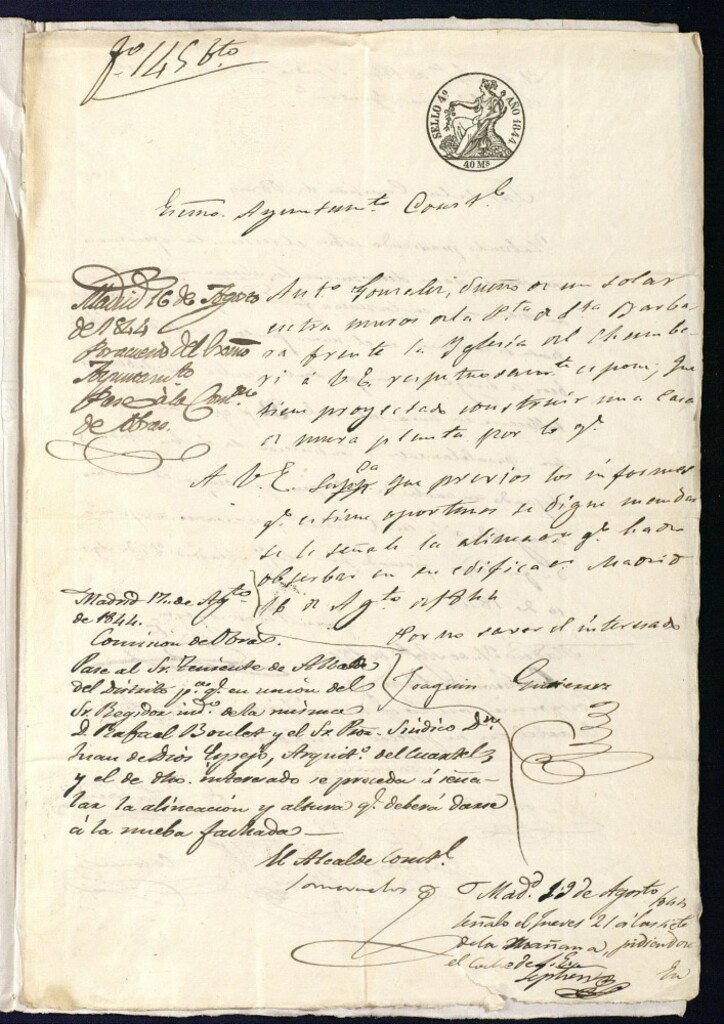 fo 145 bto
SELLO 4º AÑO 1844
40 Ms
Exmo. Ayuntamto. Constl.
Madrid 16 de Agosto
de 1844
Por acuerdo del Exmo
Ayuntamto
Pase à la Comon
de Obras.
Anto. Gonzalez, dueño de un solar
extra muros de la Pta. de Sta. Barba
ra frente la Yglesia del Chambe
ri á V.E. respetuosamte. espone, que
tiene proyectado construir una casa
de nueva planta por lo qe.
A V.E. Suppca. que previos los informes
qe. estime oportunos se digne mandar
se le señale la alineacion qe. ha de
observar en su edificacn. Madrid
16 de Agto. de 1844
Por no saver el interesado
Joaquin Gutierrez
Madrid 17 de Agto.
de 1844.
Comision de Obras.
Pase al Sr. Teniente de Alcalde
del Distrito pa. qe. en union del
Sr. Regidor indo. de la misma
D. Rafael Boulet y el Sr. Pror. Sindico Dn.
Juan de Dios Espejo, Arquito. del Cuartel,
y el de dho. interesado se proceda á seña-
lar la alineacion y altura qe. deberá darse
á la nueba fachada—
El Alcalde Constl.
Madd. 19 de Agosto 1844
Señalo el Jueves 21 á las siete
de la mañana,
el
En